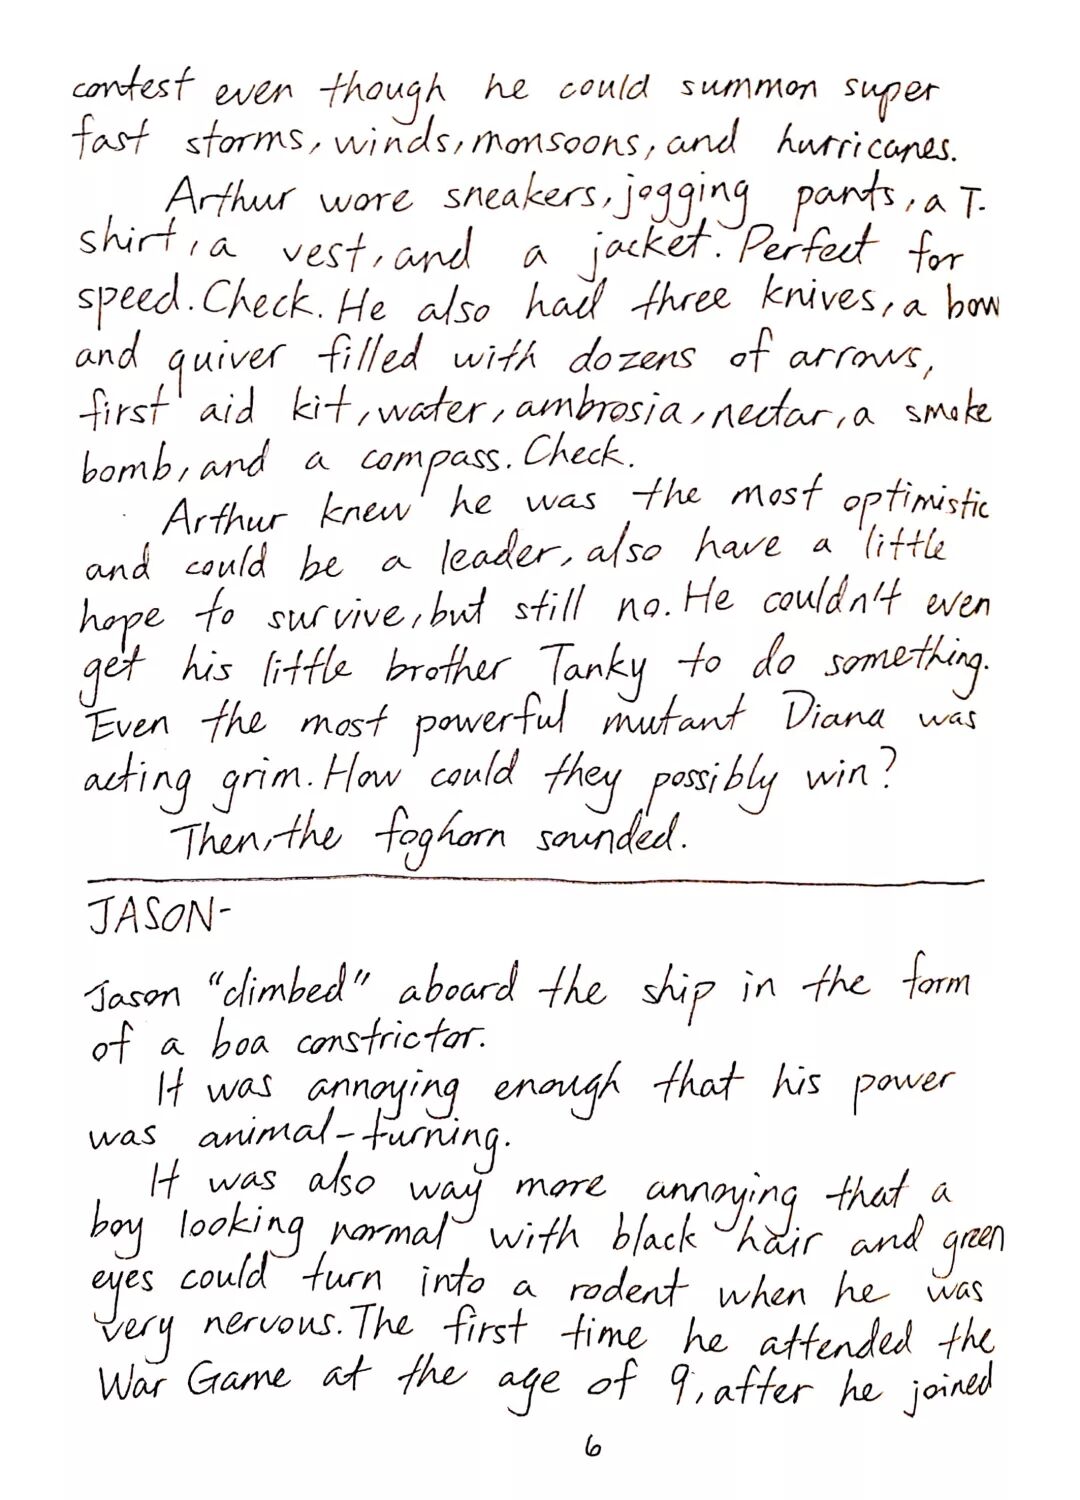 contest even though he could summon super
fast storms, winds, monsoons, and hurricanes.
Arthur wore sneakers, jogging pants, a T-
shirt, a vest, and a jacket. Perfect for
speed. Check. He also had three knives, a bow
and quiver filled with dozens of arrows,
first aid kit, water, ambrosia, nectar, a smoke
bomb, and a compass. Check.
Arthur knew he was the most optimistic
and could be a leader, also have a little
hope to survive, but still no. He couldn't even
get his little brother Tanky to do something.
Even the most powerful mutant Diana was
acting grim. How could they possibly win?
Then, the foghorn sounded.
JASON-
Jason "climbed" aboard the ship in the form
of a boa constrictor.
It was annoying enough that his power
was animal-turning.
It was also way more annoying that a
boy looking normal with black hair and green
eyes could turn into a rodent when he was
very nervous. The first time he attended the
War Game at the age of 9, after he joined
6